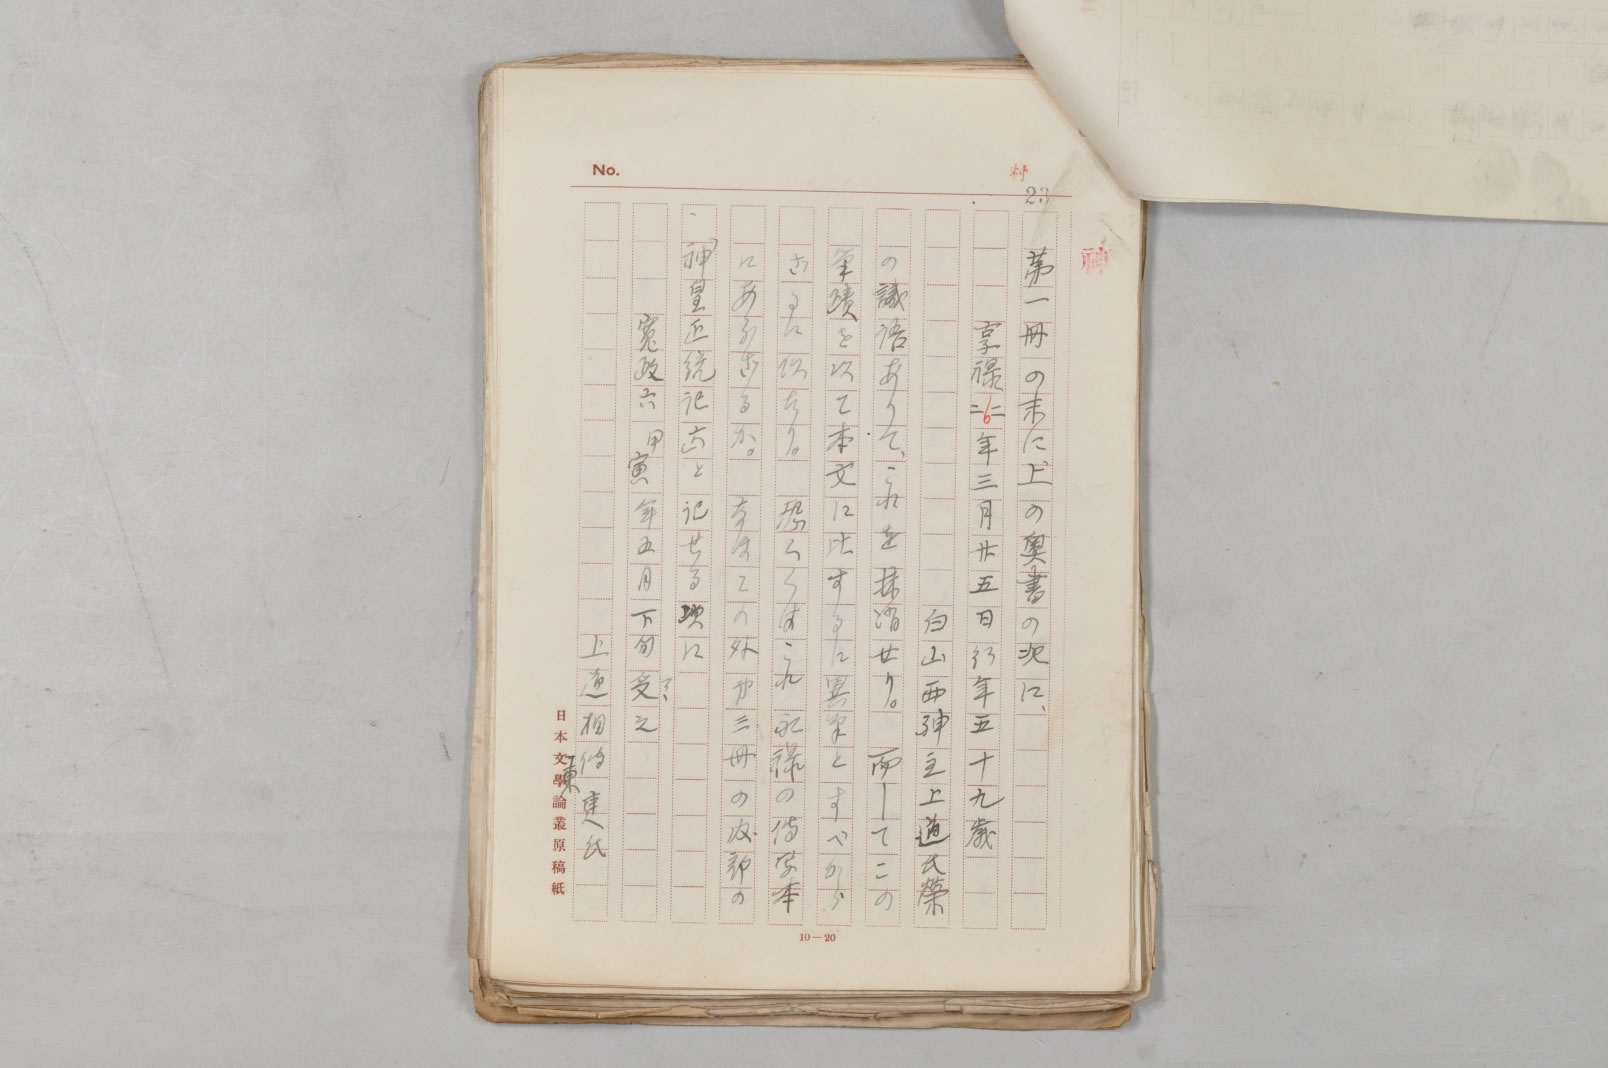 No.
23
第一冊の末に上の奥書の次に、
享禄二年三月廿五日行年五十九歳
白山西神主上道氏榮
の識語ありて、これを抹消せり。而してこの
筆蹟を以て本文に比するに異筆とすべから
ざるに似たり。恐くはこれ享禄の傳写本
にあらざるか。なほこの外第三冊の後部の
「神皇正統記六と記せる項に
寛政六甲寅年五月下旬受之
上道相傳東氏
日本文學論叢原稿紙
10—20